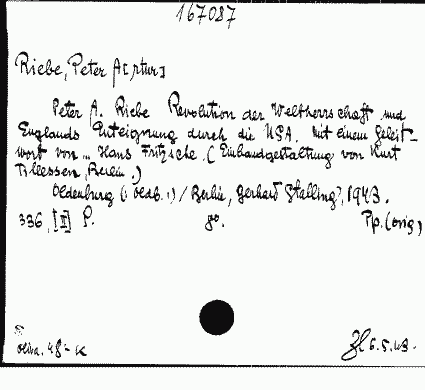 167087
Riebe, Peter A[rtur]
Peter A. Riebe Revolution der Weltherrschaft und
Englands Enteignung durch die USA. Mit einem Geleit-
wort von ... Hans Fritzsche. (Einbandgestaltung von Kurt
Tillessen, Berlin.)
Oldenburg (i. Oldb.) / Berlin, Gerhard Stalling, 1943.
336, [II] S. 8o. Pp. (orig)
48 - K
6.5.43.